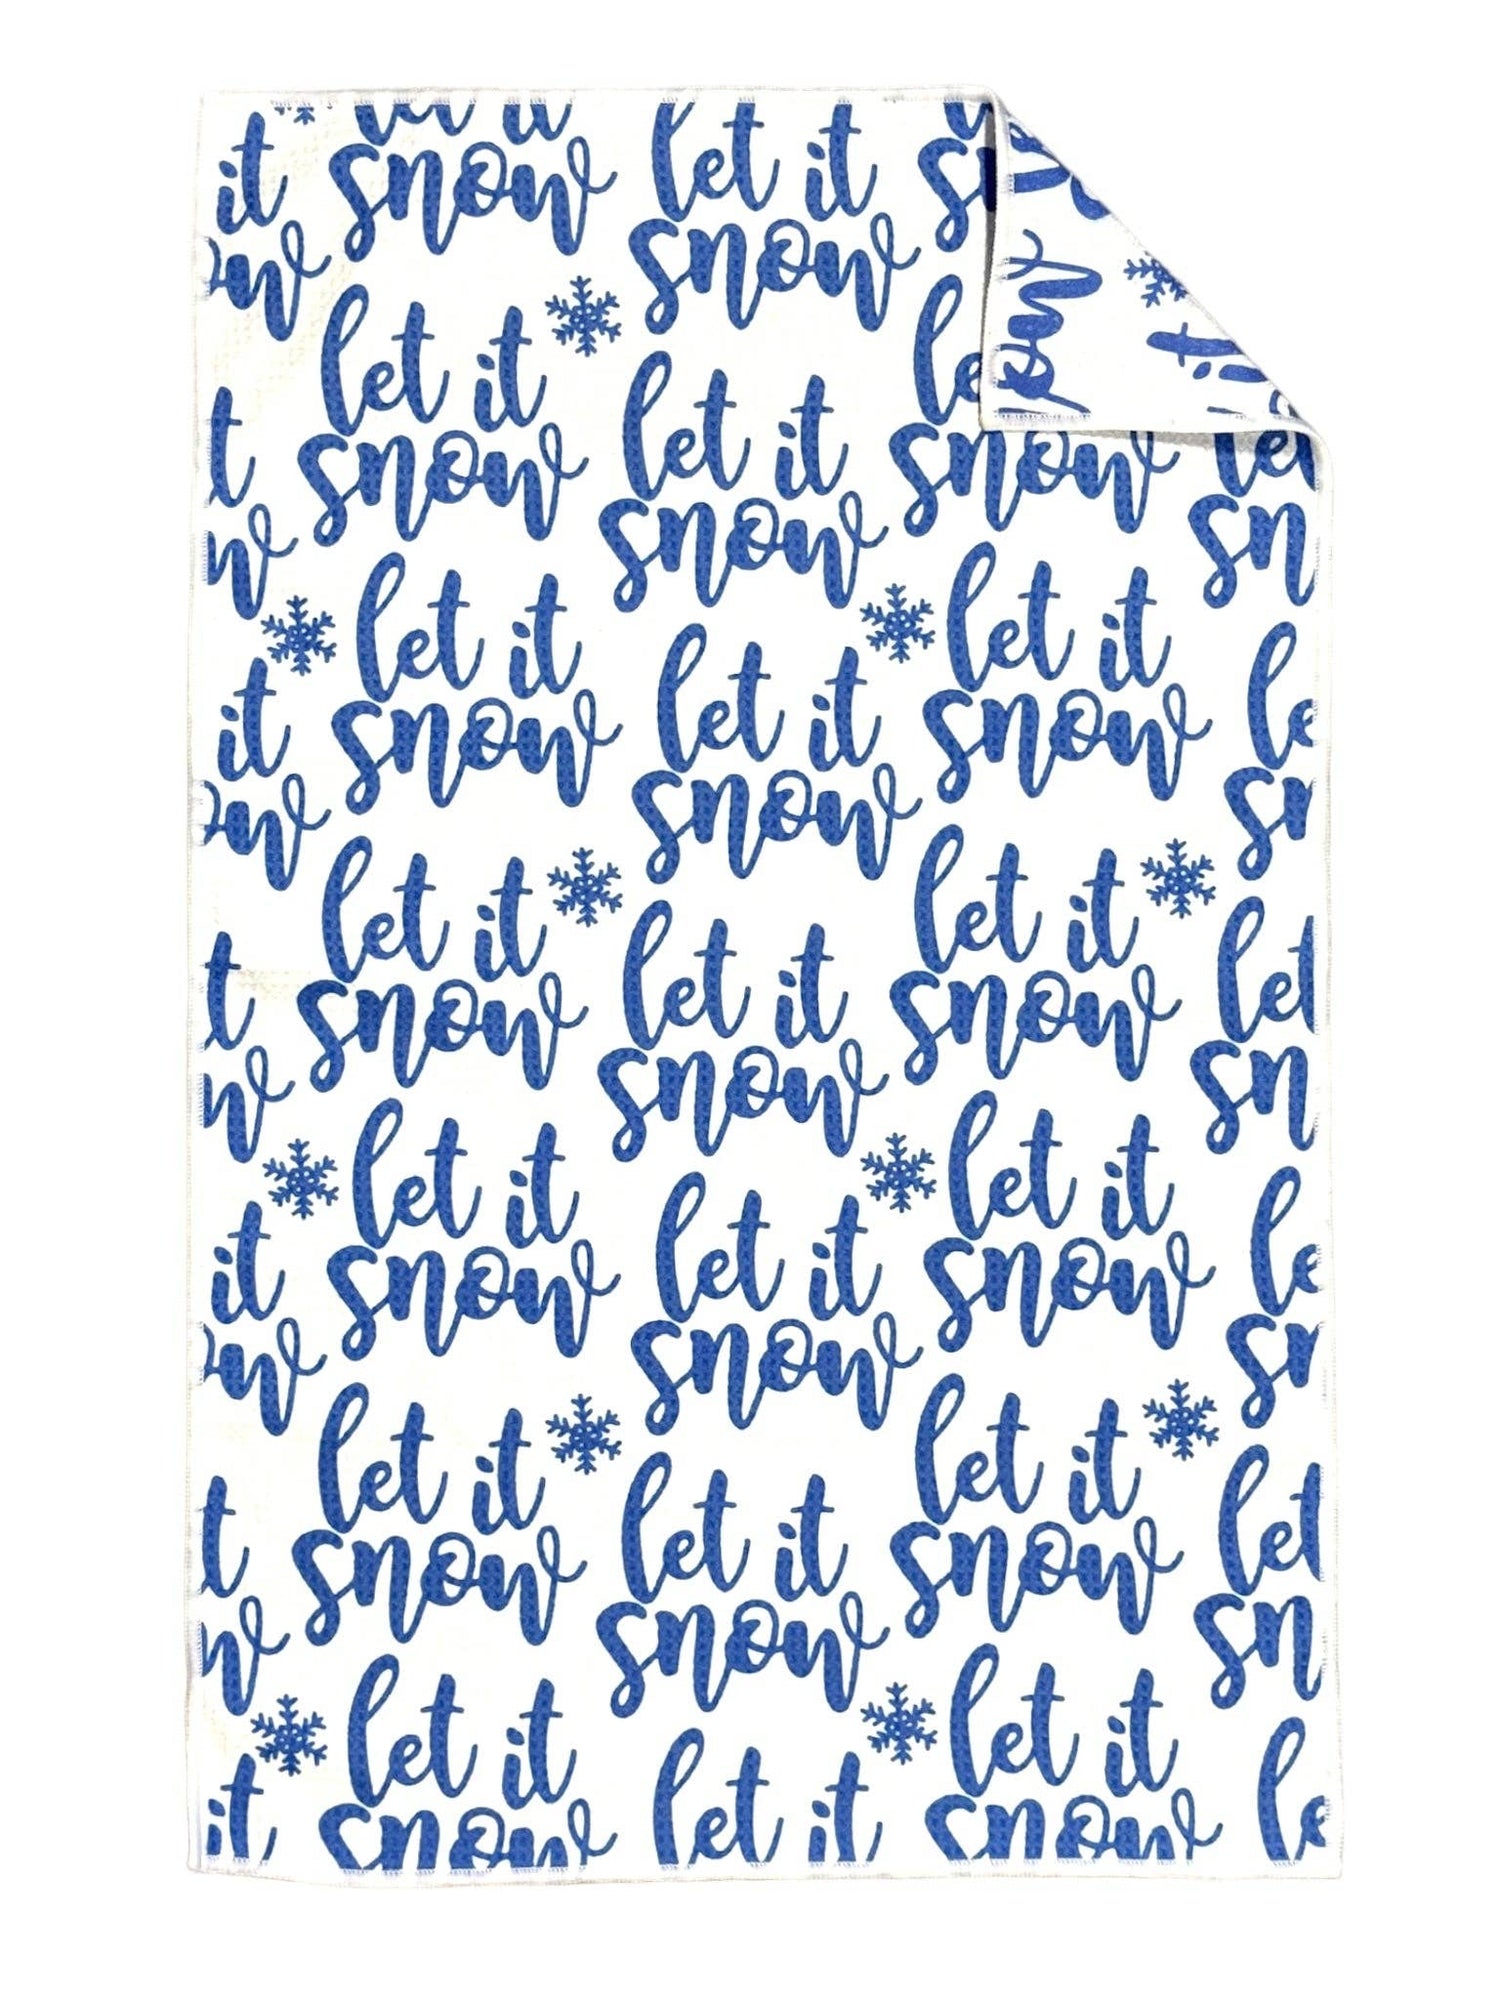 let it
snow
let it
snow
let it
snow
let it
snow
let it
snow
let it
snow
let it
snow
let it
snow
let it
snow
let it
snow
let it
snow
let it
snow
let it
snow
let it
snow
let it
snow
let it
snow
let it
snow
let it
let it
snow